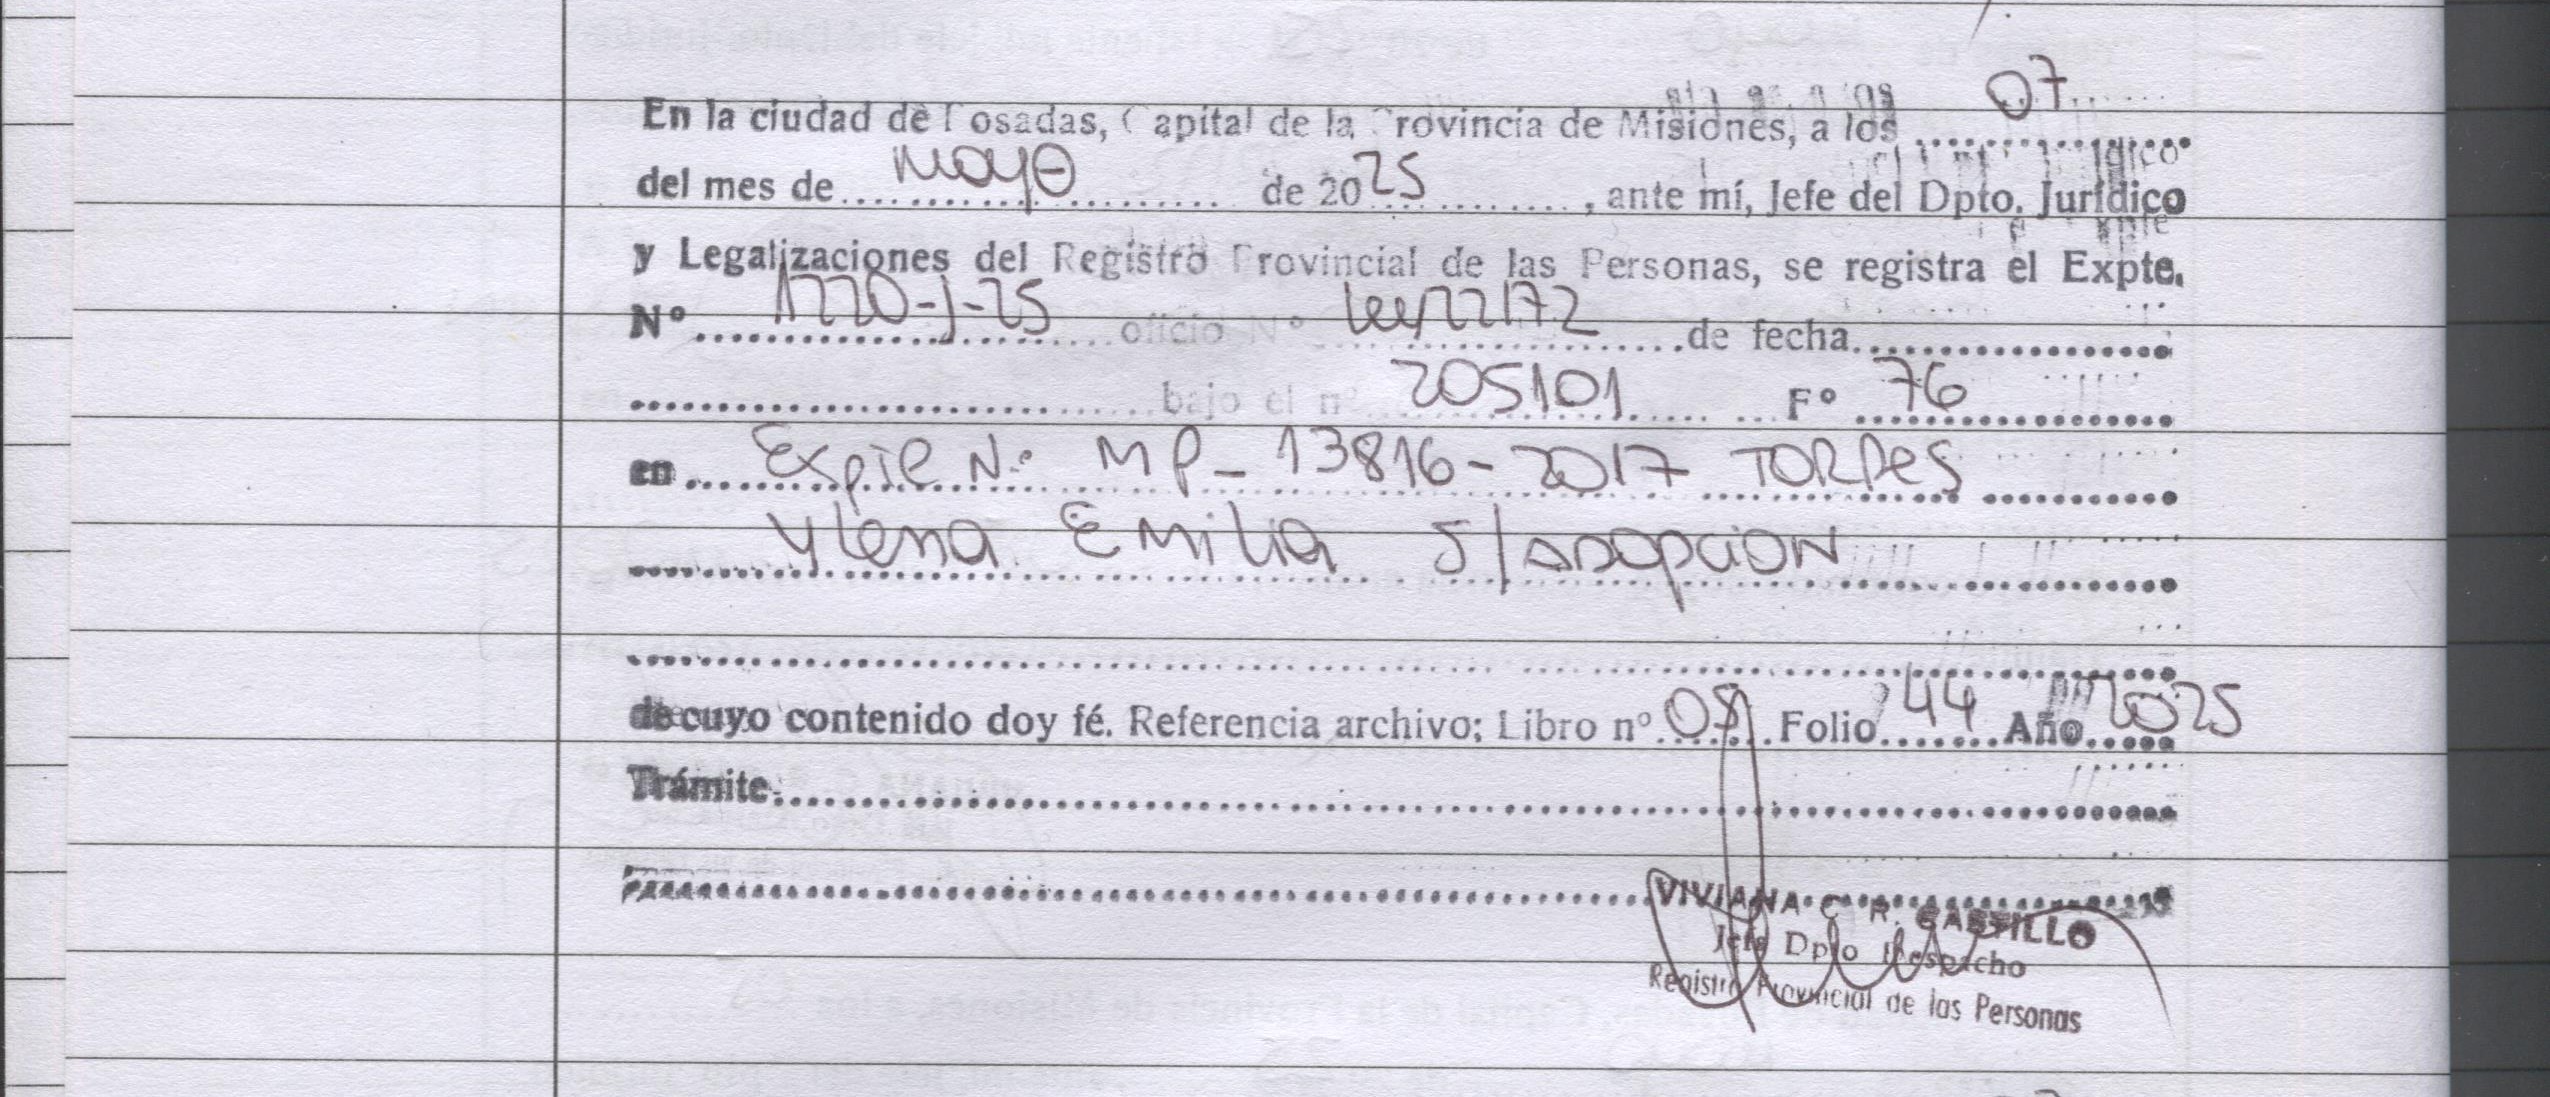 En la ciudad de Posadas, Capital de la Provincia de Misiones, a los 07
del mes de mayo de 2025, ante mí, Jefe del Dpto. Jurídico
y Legalizaciones del Registro Provincial de las Personas, se registra el Expte.
Nº 1220-J-25 oficio Nº Ley 22172 de fecha
bajo el nº 205101 Fº 76
en Expte Nº MP-13816-2017 TORRES
Ylena Emilia S/ADOPCION
de cuyo contenido doy fé. Referencia archivo; Libro nº 05 Folio 44 Año 2025
Trámite
VIVIANA C. R. CASTILLO
Jefe Dpto Despacho
Registro Provincial de las Personas